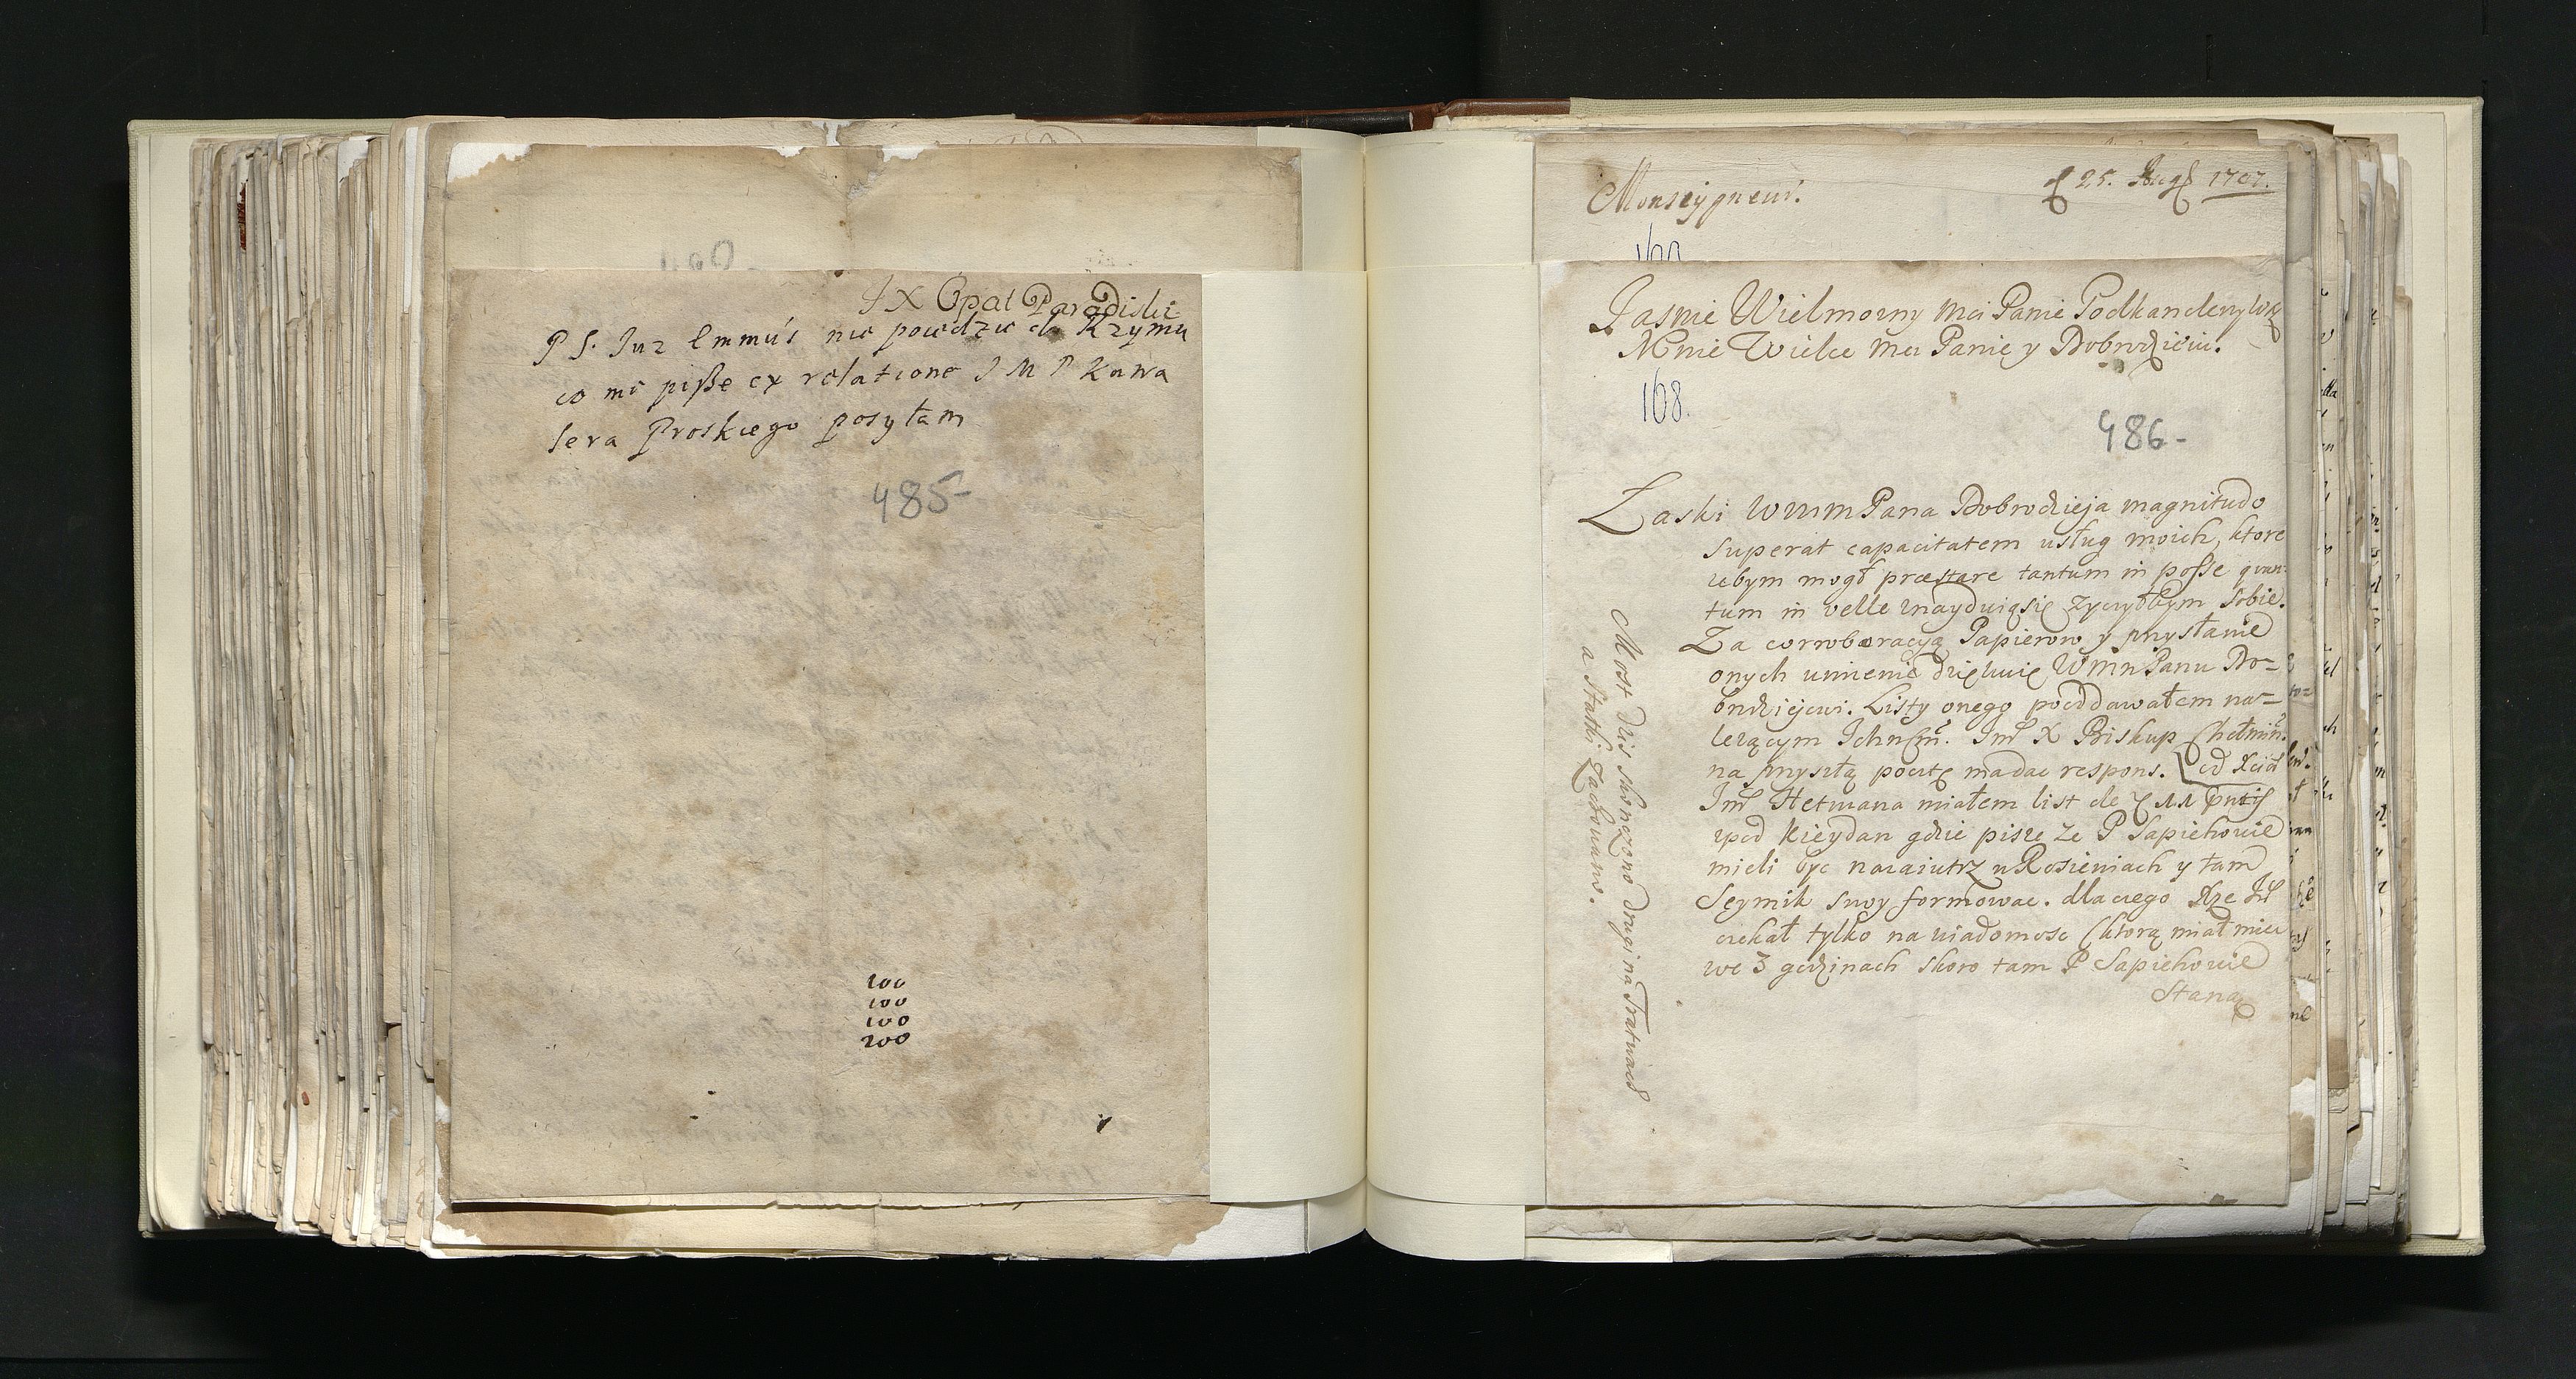 JX Opat Paradiski
PS. Juz Emmus nie poiedzie do Krzymu
co mi pisze ex relatione J M P Kawa
lera Proskiego posyłam
485-
100
100
100
200
Monseigneur.
25. Aug 1707.
Jasnie Wielmozny Mci Panie Podkanclerzy WXL
Mnie Wielce Mci Panie y Dobrodzieiu.
168.
486-
Łaski WMM Pana Dobrodzieja magnitudo
superat capacitatem usług moich, ktore
zebym mogł præstare tantum in posse quan
tum in velle znayduią się zyczyłbym sobie.
Za corroboracyą Papierow y przysłanie
onych unizenie dziękuię WMM Panu Do=
brodziejewi. Listy onego pooddawałem na=
lezącym Ichmm. Jm X Biskup Chełmin.
na przyszłą pocztę ma dac respons. od Xcia
Jm Hetmana miałem list de 11
zpod Kieydan gdzie pisze ze P Sapiehowie
mieli byc nazaiutrz w Rosieniach y tam
Seymik swoy formowac. dlaczego Xze Jm
czekał tylko na wiadomosc (ktorą miał miec
we 3 godzinach skoro tam P Sapiehowie
Staną
Most dzis skonczono drugi na Tratwach
a Statki zachowano.